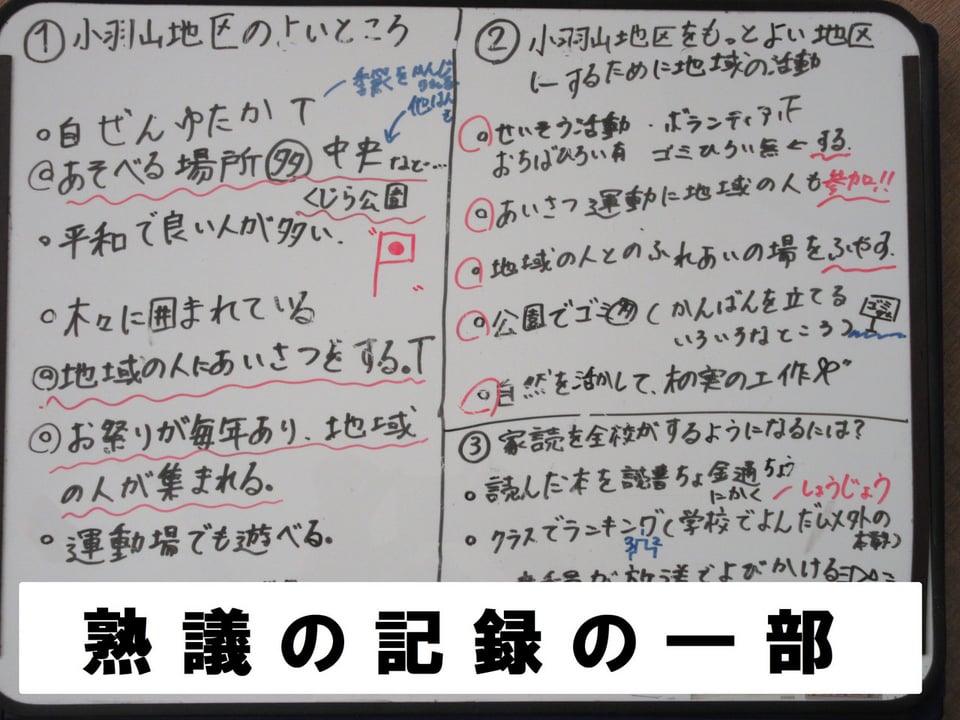 ① 小羽山地区のよいところ
季祭を
他はん
。自ぜんゆたか T
◎あそべる場所 多 中央 など…
くじら公園
。平和で良い人が多い.
。木々に囲まれている
◎地域の人にあいさつをする。T
◎お祭りが毎年あり、地域
の人が集まれる。
。運動場でも遊べる。
② 小羽山地区をもっとよい地区
にーするために地域の活動
。せいそう活動 ・ボランティア下
おちばひろい有 ゴミひろい無 ← する.
。あいさつ運動に地域の人も参加!!
。地域の人とのふれあいの場をふやす.
。公園でゴミ多 (かんばんを立てる
いろいろなところ)
ゴミ
。自然を活かして、木の実の工作や
③ 家読を全校がするようになるには?
。読んだ本を読書ちょ金通ちょう
にかく
しょうじょう
。クラスでランキング (学校でよんだ以外の
本数)
が放送でよびかける
熟議の記録の一部